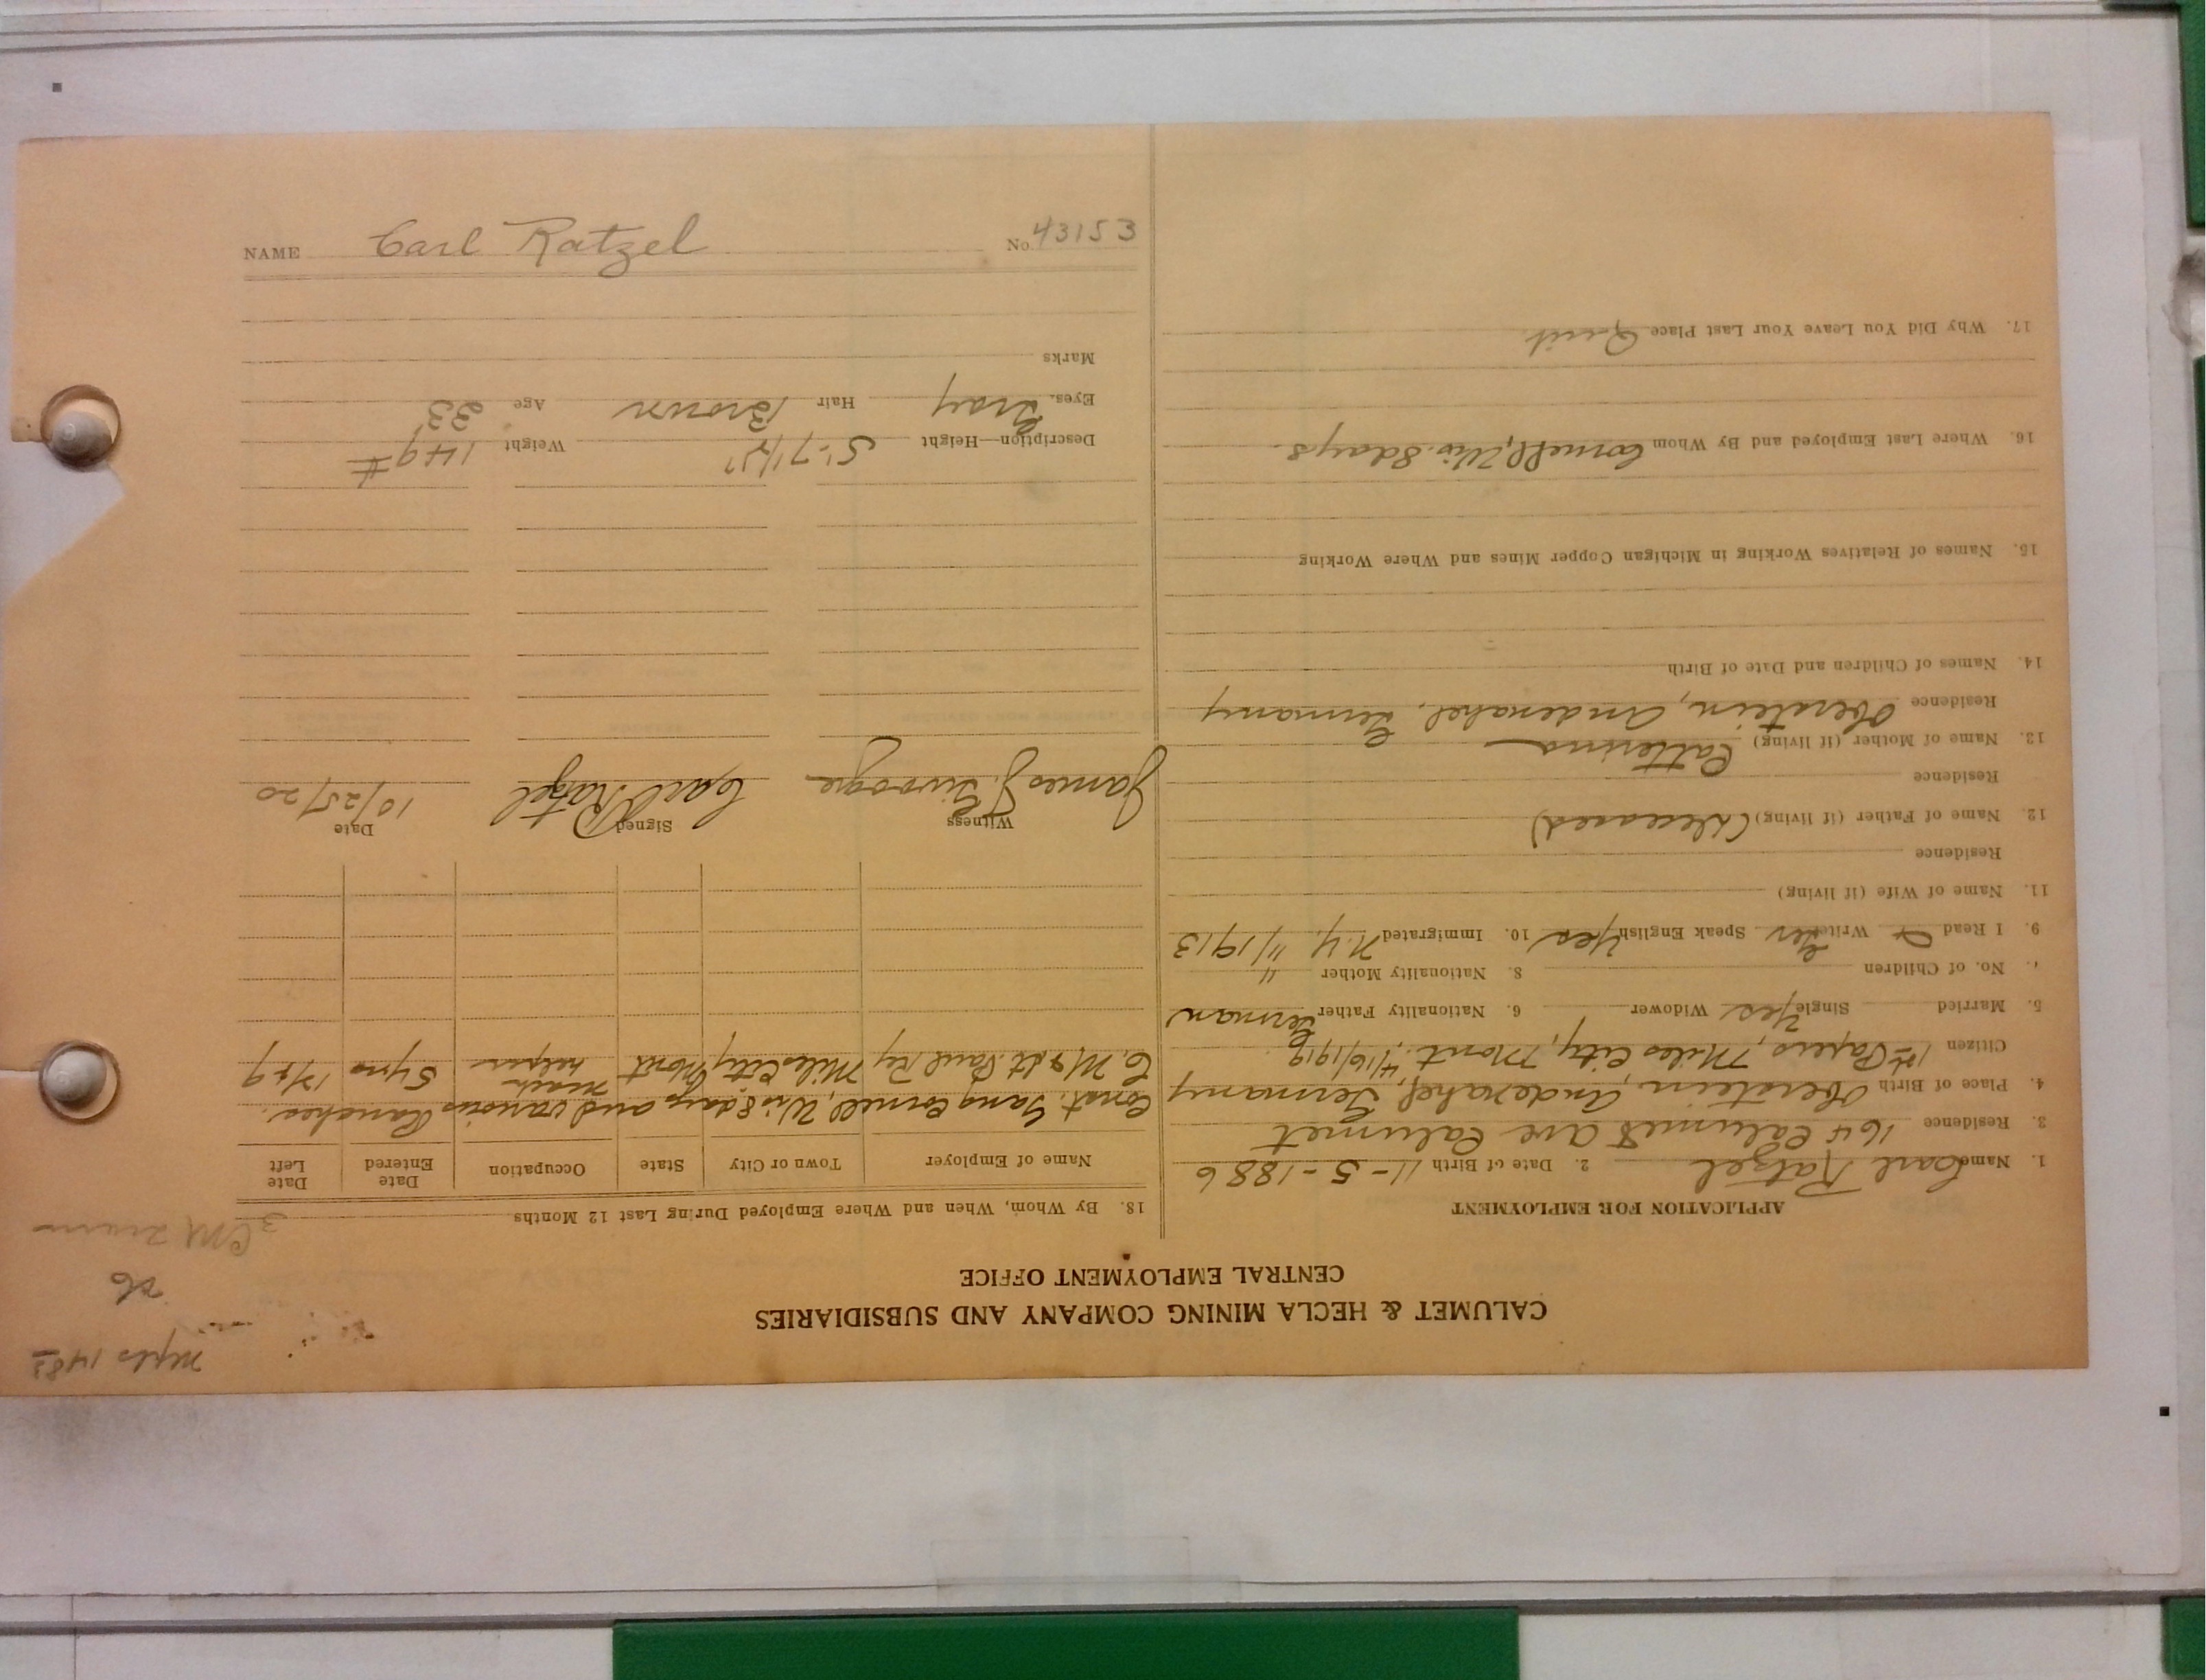 CALUMET & HECLA MINING COMPANY AND SUBSIDIARIES
CENTRAL EMPLOYMENT OFFICE
APPLICATION FOR EMPLOYMENT
1. Name Carl Ratzel 2. Date of Birth 11-5-1886
3. Residence 164 Calumet Ave Calumet
4. Place of Birth Oberstein, Germany
Citizen 1st Papers, Miles City, Mont. 4/16/1919
5. Married Single Yes Widower 6. Nationality Father German
No. of Children 8. Nationality Mother "
9. I Read & Write Ger Speak English Yes 10. Immigrated N.Y. 11/1913
11. Name of Wife (if living)
Residence
12. Name of Father (if living) (Deceased)
Residence
13. Name of Mother (if living) Catterina
Residence Oberstein, Germany
14. Names of Children and Date of Birth
15. Names of Relatives Working in Michigan Copper Mines and Where Working
16. Where Last Employed and By Whom Cornell, Wis. 8 days.
17. Why Did You Leave Your Last Place Quit.
18. By Whom, When and Where Employed During Last 12 Months
Name of Employer Town or City State Occupation Date Entered Date Left
Const. Gang Cornell, Wis 8 days and various Ranches.
C. M & St. Paul Ry Miles City Mont mach helper 5 yrs 12/19
Witness Signed Date
James J. Carl Ratzel 10/25/20
Description—Height 5'-7 1/2" Weight 149#
Eyes. Gray Hair Brown Age 33
Marks
NAME Carl Ratzel No. 43153